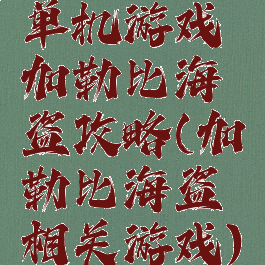 单机游戏
加勒比海
盗攻略(加
勒比海盗
相关游戏)